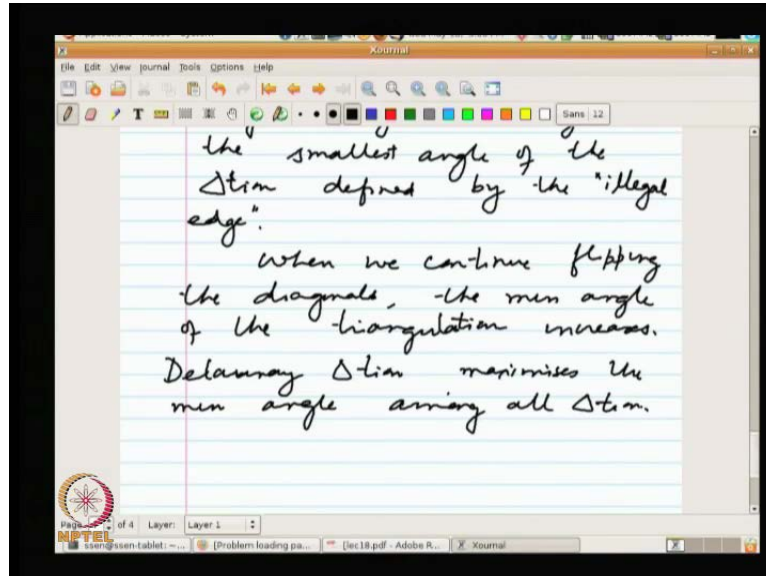 Xournal
File Edit View Journal Tools Options Help
Sans 12
the smallest angle of the
Δtion defined by the "illegal
edge".
When we continue flipping
the diagonals, the min angle
of the triangulation increases.
Delaunay Δtion maximises the
min angle among all Δtion.
Page of 4 Layer: Layer 1
NPTEL
ssen@ssen-tablet: ~... [Problem loading pa... [lec18.pdf - Adobe R... Xournal